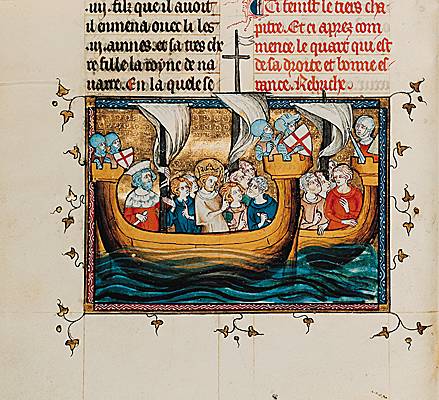 .iiij. filz que il auoit
il enmena ouec li les
.iij. ainnes. et sa tres che
re fille la royne de na
uarre. En la quele se
Ci fenist le tiers cha
pitre. Et ci apres com
mence le quart qui est
de sa droite et bonne es
tance. Rebriche.